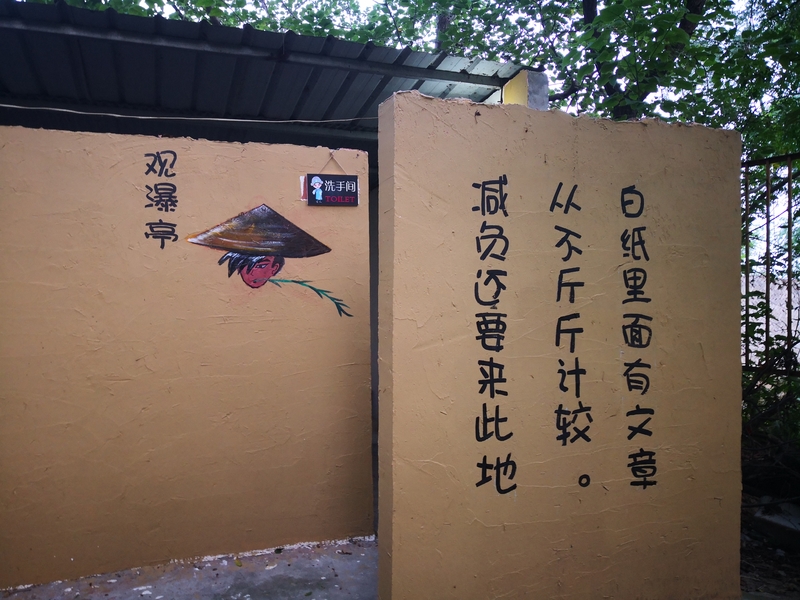 观瀑亭
洗手间
TOILET
白纸里面有文章
从不斤斤计较。
减负还要来此地